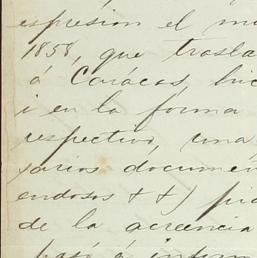 espresion el m
1858, que trasla
á Carácas, hic
i en la forma
respectivo, una
sarios documen
endosos & &) pid
de la acreencia
pasó á inform